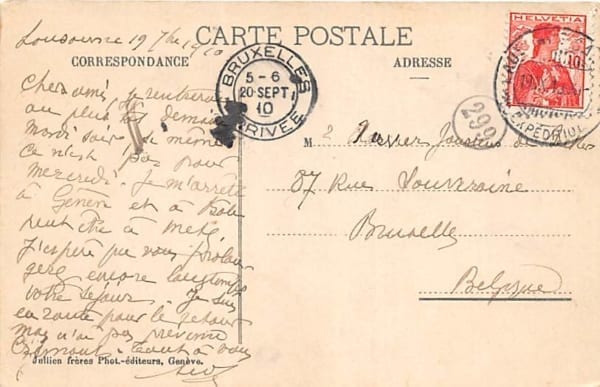 CARTE POSTALE
CORRESPONDANCE
ADRESSE
HELVETIA
BRUXELLES
5-6
20 SEPT
10
ARRIVEE
EXPEDITION
299
19 7bre 1910
Cher ami, je rentrerai
au plus tôt demain
Mardi soir si même
ce n'est pas pour
mercredi. Je m'arrête
à Genève et à
peut être à Metz
J'espère que vous prolon
gere encore longtemps
votre séjour. Je suis
en route pour le retour
mais n'ai pas prévenu
tout à vous
M
87 Rue
Bruxelles
Belgique
Jullien frères Phot.-éditeurs, Genève.